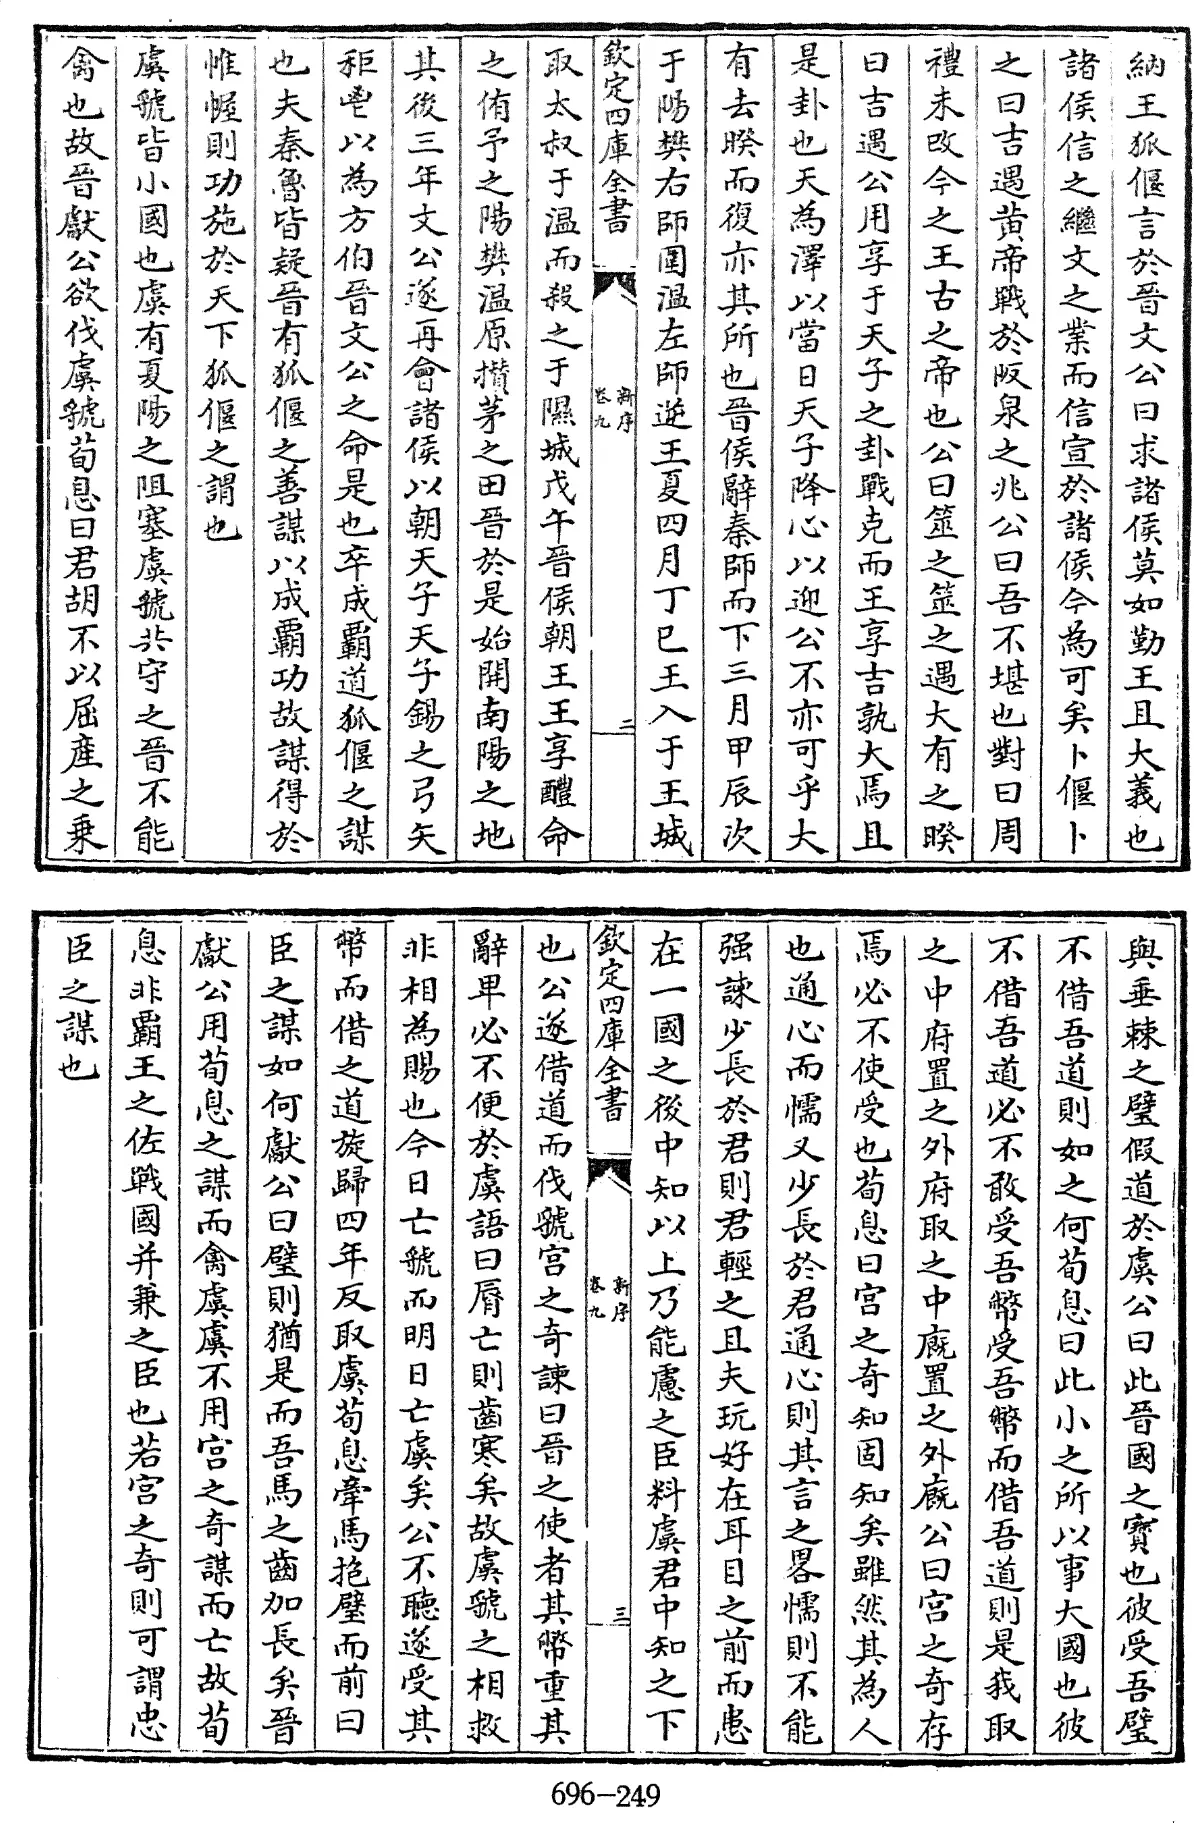 納王狐偃言於晉文公曰求諸侯莫如勤王且大義也
諸侯信之繼文之業而信宣於諸侯今為可矣卜偃卜
之曰吉遇黃帝戰於阪泉之兆公曰吾不堪也對曰周
禮未改今之王古之帝也公曰筮之筮之遇大有之睽
曰吉遇公用享于天子之卦戰克而王享吉孰大焉且
是卦也天為澤以當日天子降心以迎公不亦可乎大
有去睽而復亦其所也晉侯辭秦師而下三月甲辰次
于陽樊右師圍溫左師逆王夏四月丁巳王入于王城
欽定四庫全書
新序
卷九
二
取太叔于溫而殺之于隰城戊午晉侯朝王王享醴命
之侑予之陽樊溫原攢茅之田晉於是始開南陽之地
其後三年文公遂再會諸侯以朝天子天子錫之弓矢
秬鬯以為方伯晉文公之命是也卒成霸道狐偃之謀
也夫秦魯皆疑晉有狐偃之善謀以成霸功故謀得於
帷幄則功施於天下狐偃之謂也
虞虢皆小國也虞有夏陽之阻塞虞虢共守之晉不能
禽也故晉獻公欲伐虞虢荀息曰君胡不以屈產之乗
與垂棘之璧假道於虞公曰此晉國之寶也彼受吾璧
不借吾道則如之何荀息曰此小之所以事大國也彼
不借吾道必不敢受吾幣受吾幣而借吾道則是我取
之中府置之外府取之中廐置之外廐公曰宮之奇存
焉必不使受也荀息曰宮之奇知固知矣雖然其為人
也通心而懦又少長於君通心則其言之畧懦則不能
强諫少長於君則君輕之且夫玩好在耳目之前而患
在一國之後中知以上乃能慮之臣料虞君中知之下
欽定四庫全書
新序
卷九
三
也公遂借道而伐虢宮之奇諫曰晉之使者其幣重其
辭卑必不便於虞語曰脣亡則齒寒矣故虞虢之相救
非相為賜也今日亡虢而明日亡虞矣公不聽遂受其
幣而借之道旋歸四年反取虞荀息牽馬抱璧而前曰
臣之謀如何獻公曰璧則猶是而吾馬之齒加長矣晉
獻公用荀息之謀而禽虞虞不用宮之奇謀而亡故荀
息非霸王之佐戰國并兼之臣也若宮之奇則可謂忠
臣之謀也
696-249